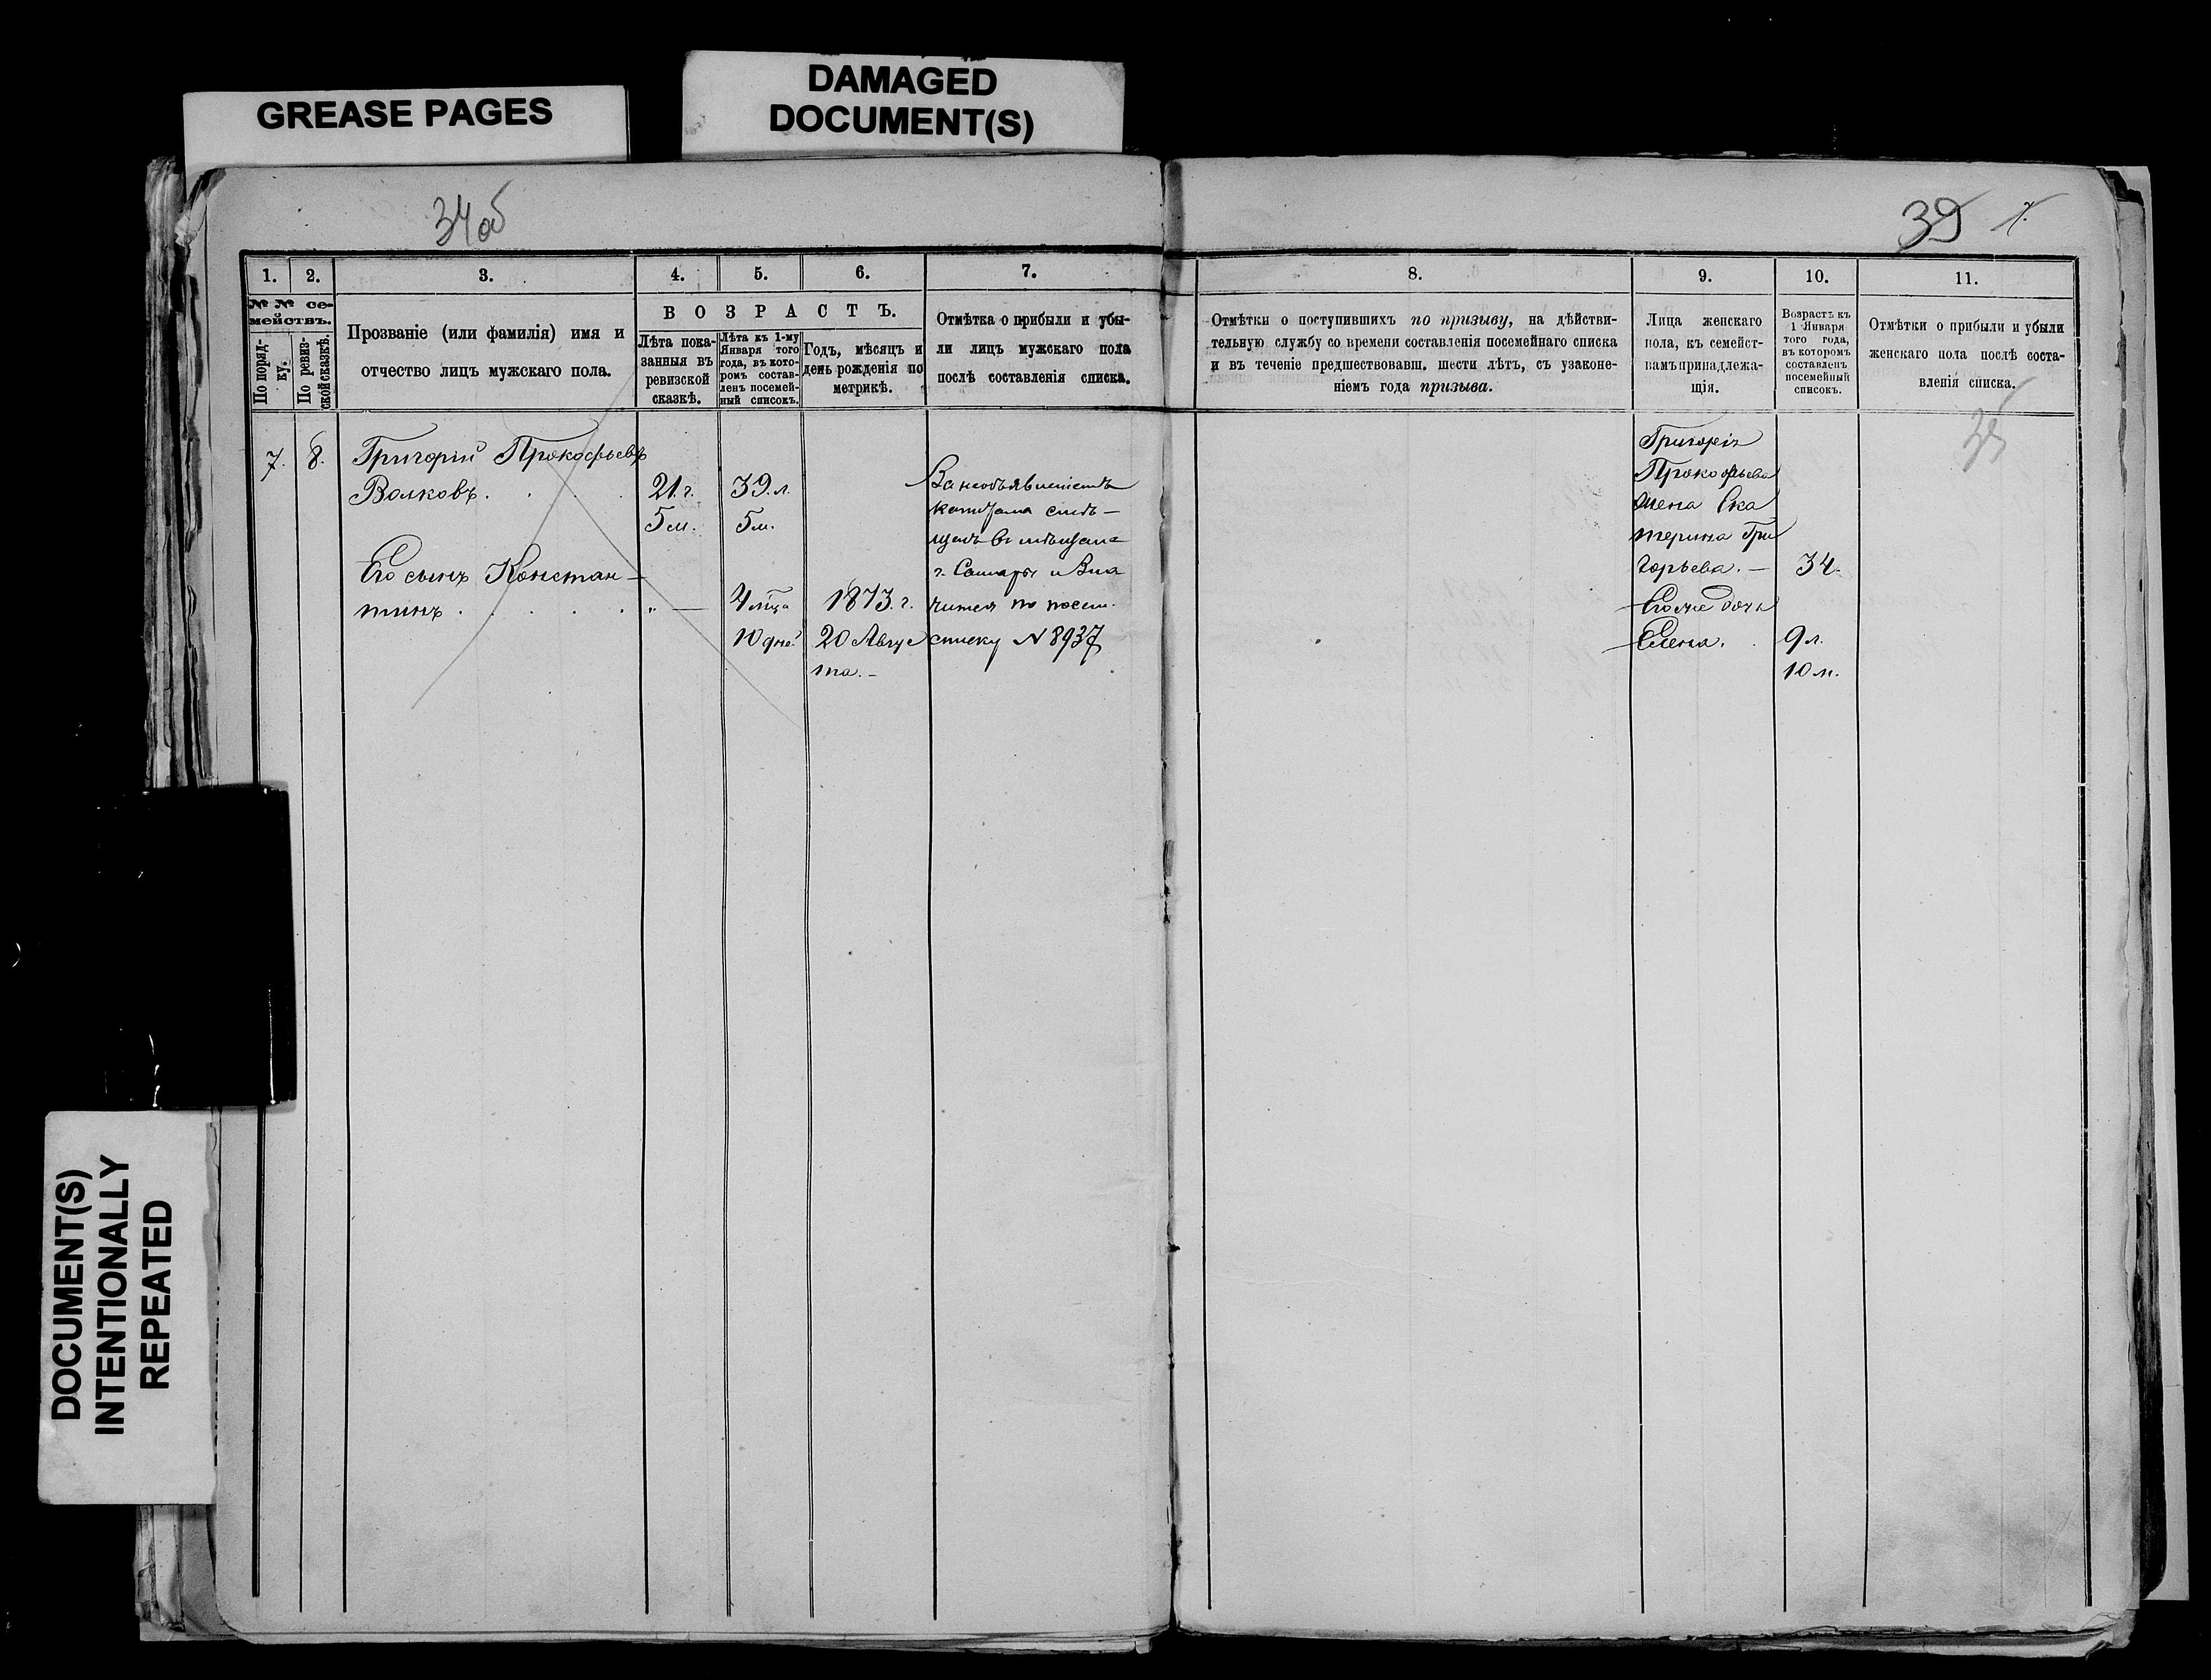 GREASE PAGES
DAMAGED
DOCUMENT(S)
34 об
39
1.
2.
3.
4.
5.
6.
7.
№ № се-
мействъ.
По поряд-
ку.
По ревиз-
ской сказкѣ.
Прозваніе (или фамилія) имя и
отчество лицъ мужскаго пола.
ВОЗРАСТЪ.
Лѣта пока-
занныя въ
ревизской
сказкѣ.
Лѣта къ 1-му
Января того
года, въ кото-
ромъ состав-
ленъ посемей-
ный списокъ.
Годъ, мѣсяцъ и
день рожденія по
метрикѣ.
Отмѣтка о прибыли и убы-
ли лицъ мужскаго пола
послѣ составленія списка.
8.
9.
10.
11.
Отмѣтки о поступившихъ по призыву, на дѣйстви-
тельную службу со времени составленія посемейнаго списка
и въ теченіе предшествовавш. шести лѣтъ, съ узаконе-
ніемъ года призыва.
Лица женскаго
пола, къ семейст-
вамъ принадлежа-
щія.
Возрастъ къ
1 Января
того года,
въ которомъ
составленъ
посемейный
списокъ.
Отмѣтки о прибыли и убыли
женскаго пола послѣ соста-
вленія списка.
7.
8.
Григорій Прокофьевъ
Волковъ.
Его сынъ Констан-
тинъ
21 г.
5 м.
" —
39 л.
5 м.
4 мѣца
10 дне
1873 г.
20 Авгус
та.-
За необъявленіемъ
капитала
г. Самары и Зна
чится по посем.
списку № 8937
Григорія
Прокофьева
жена Ека
терина Гри
горьева. —
Его же дочь
Елена.
34.
9 л.
10 м.
35
DOCUMENT(S)
INTENTIONALLY
REPEATED